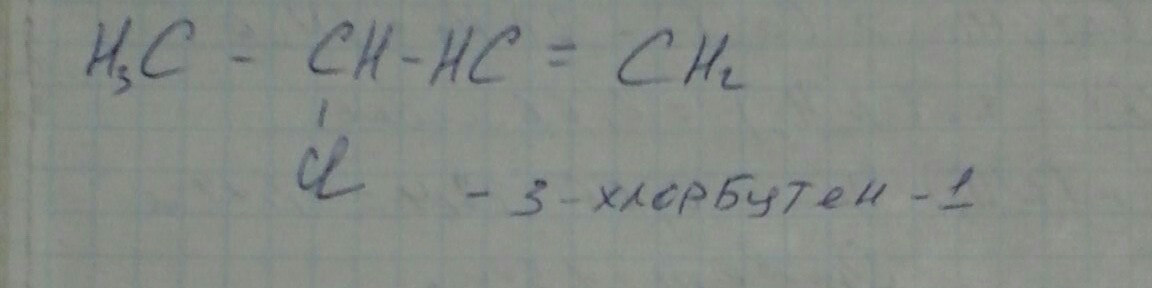 H₃C - CH-HC = CH₂
Cl
- 3-хлорбутен-1